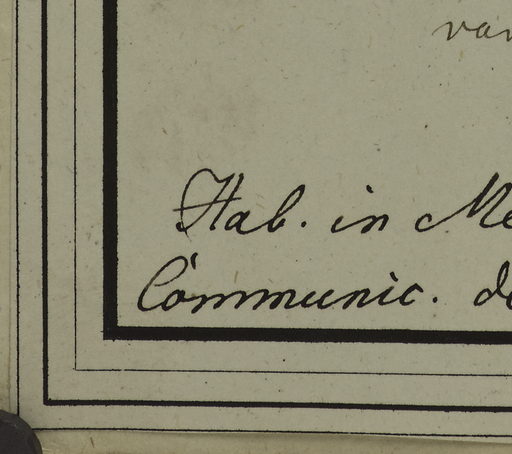 var
Hab. in Me
Communic. de